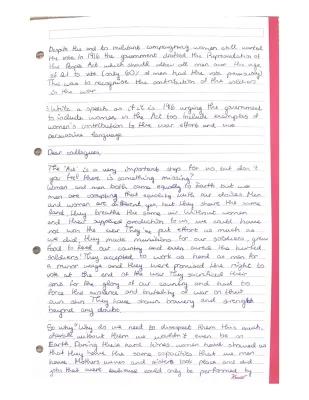 Despite the end to militant campaigning women still wanted
the vote. In 1916 the government drafted the Representation of
the People Act, which should allow all men over the age
of 21 to vote (only 60% of men had the vote previously)
This was to recognise the contribution of the soldiers
in the war
Write a speech as if it is 1916 urging the government
to include women in the Act too. Include examples of
women's contribution to the war effort and use
persuasive language
Dear colleagues,
The 'Act' is a very important step for us, but don't
you feel there is something missing?
Women and men both came equally to Earth but we
men are corrupting that equality with our desires. Men
and women are different yes, but they share the same
land, they breathe the same air. Without women
and their supplies production to us, we would have
not won the war. They've put effort as much as
we did, they made munitions for our soldiers, grew
food to feed our country and even nursed the hurted
soldiers! They accepted to work as hard as men for
a minor wage and they were promised the right to
vote at the end of the war. They sacrificed their
sons for the glory of our country and had to
face the and brutality of war on their
own skin. They have shown bravery and strength
beyond any doubt.
So why? Why do we need to disrespect them this much,
without them we wouldn't even be on
Earth. During these hard times women have showed us
that they have the same capacities that we men
have. Mothers, wives and sisters took place and did
jobs that were believed could only be performed by